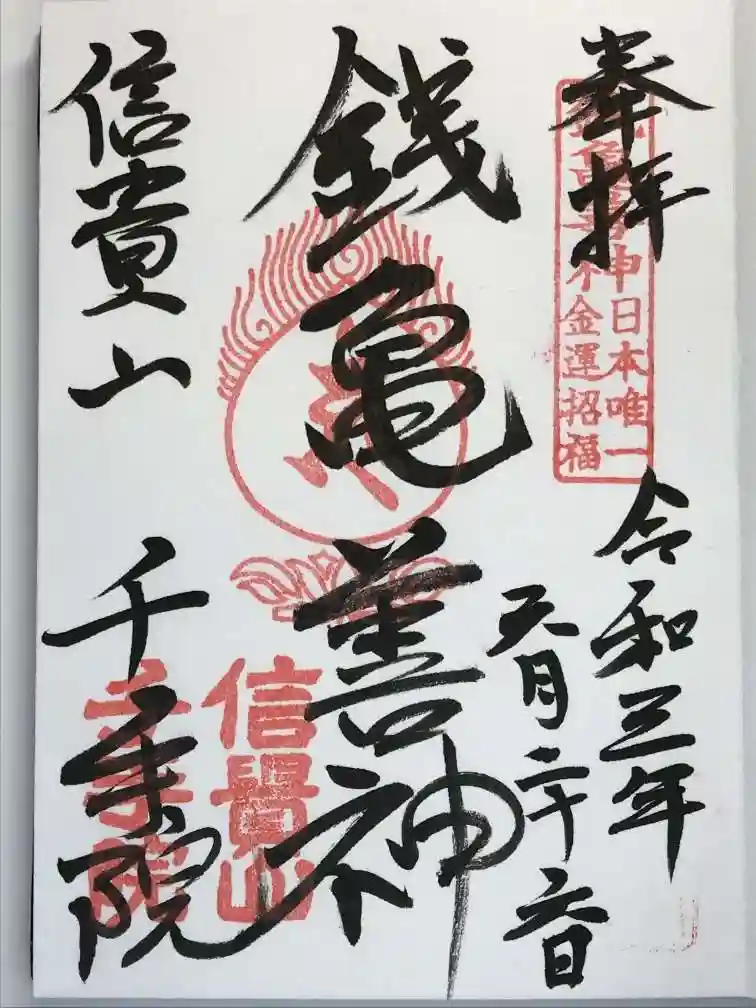 奉拝
日本唯一
金運招福
令和三年
五月二十六日
銭亀善神
信貴山
千手院
信貴山
千手院